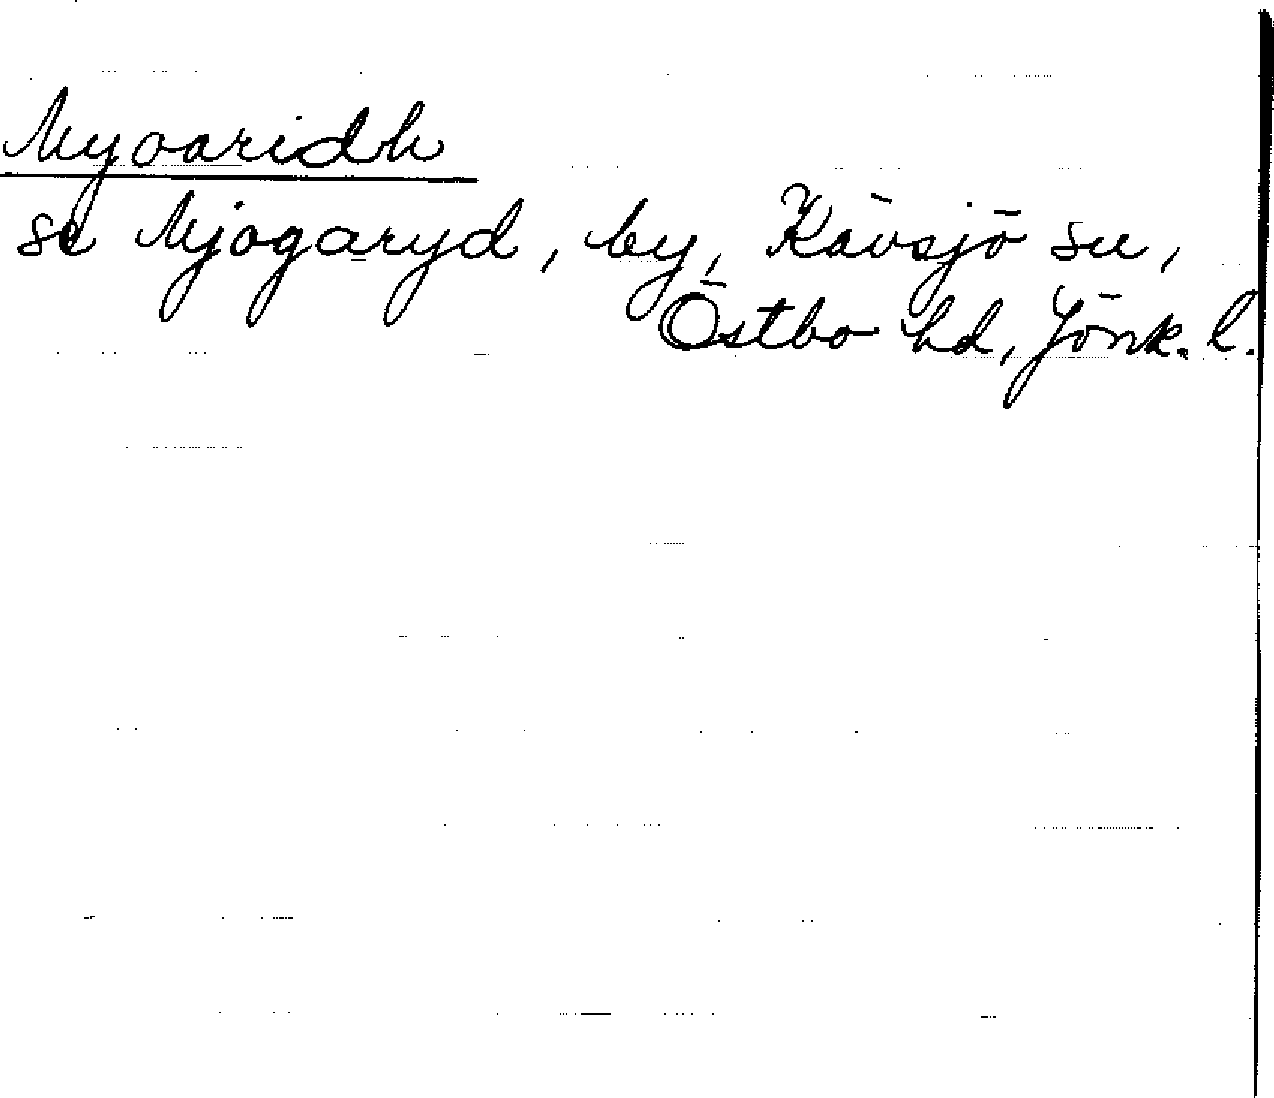 Myoaridh
se Mjogaryd, by, Kävsjö sn,
Östbo hd, Jönk. l.